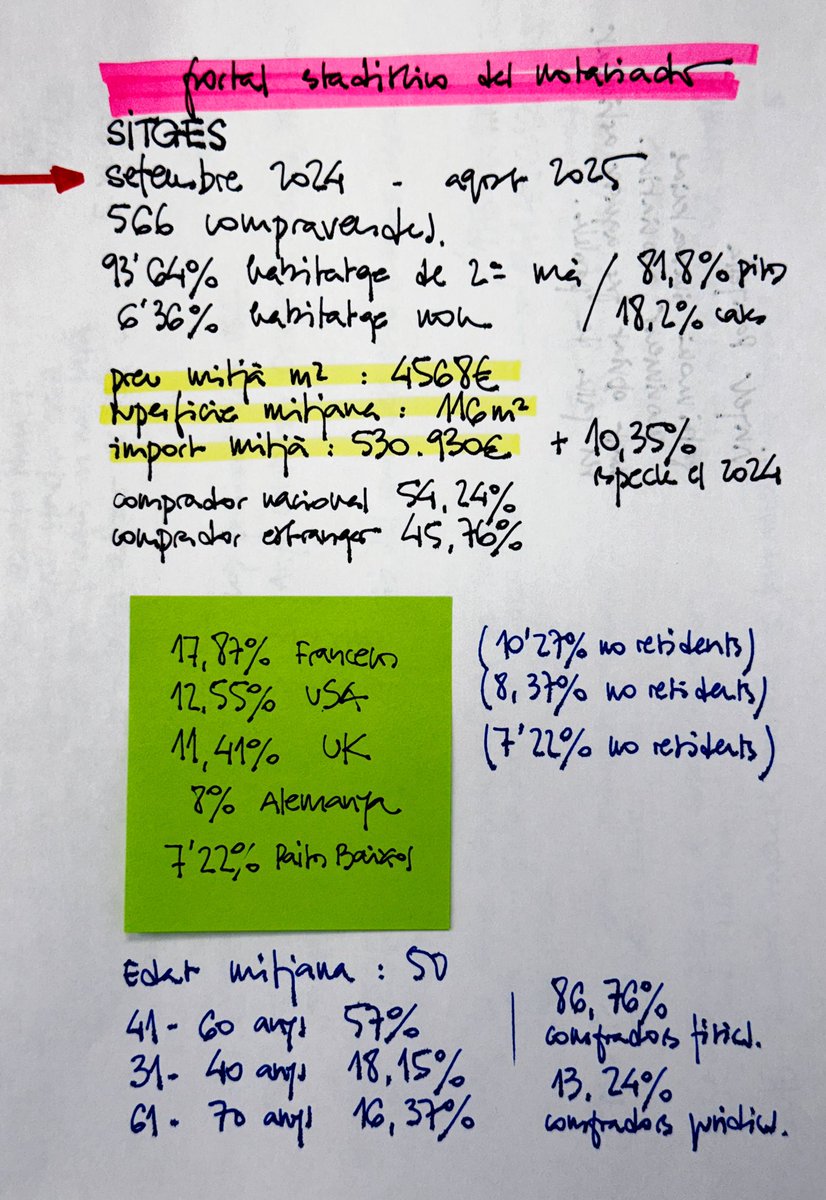 portal stadistico del notariado
SITGES
setembre 2024 - agost 2025
566 compravendes.
93'64% habitatge de 2ª mà / 81,8% pisos
6'36% habitatge nou / 18,2% cases
preu mitjà m² : 4568€
superfície mitjana : 116 m²
import mitjà : 530.930€ + 10,35%
respecte el 2024
comprador nacional 54,24%
comprador estranger 45,76%
17,87% Francesos (10'27% no residents)
12,55% USA (8,37% no residents)
11,41% UK (7'22% no residents)
8% Alemanya
7'22% Països Baixos
Edat mitjana : 50
41 - 60 anys 57% | 86,76%
compradors físics.
31 - 40 anys 18,15% 13,24%
61 - 70 anys 16,37% compradors jurídics.